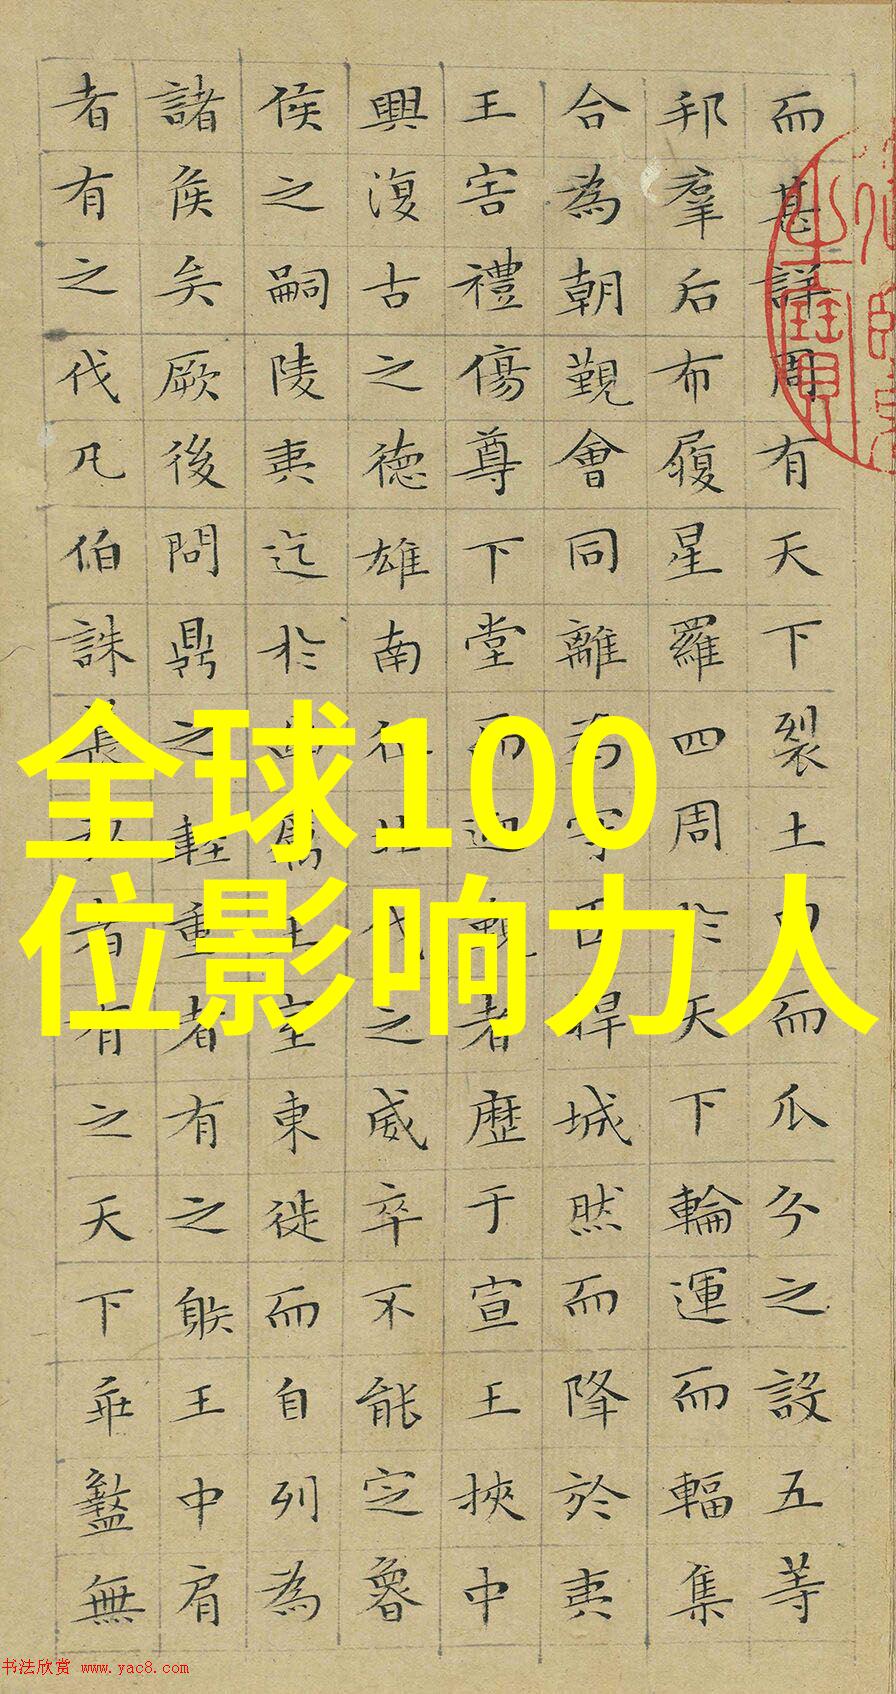 而甚詳周有天下裂土田而瓜分之設五等
邦羣后布履星羅四周於天下輪運而輻集
合為朝覲會同離為守臣捍城然而降於夷
王害禮傷尊下堂而迎覲者歷于宣王挾中
興復古之德雄南征北伐之威卒不能定魯
侯之嗣陵夷迄於幽厲王室東徙而自列為
諸侯矣厥後問鼎之輕重者有之射王中肩
者有之伐凡伯誅萇弘者有之天下乖盭無
全球100
位影响力人
书法欣赏 www.yac8.com